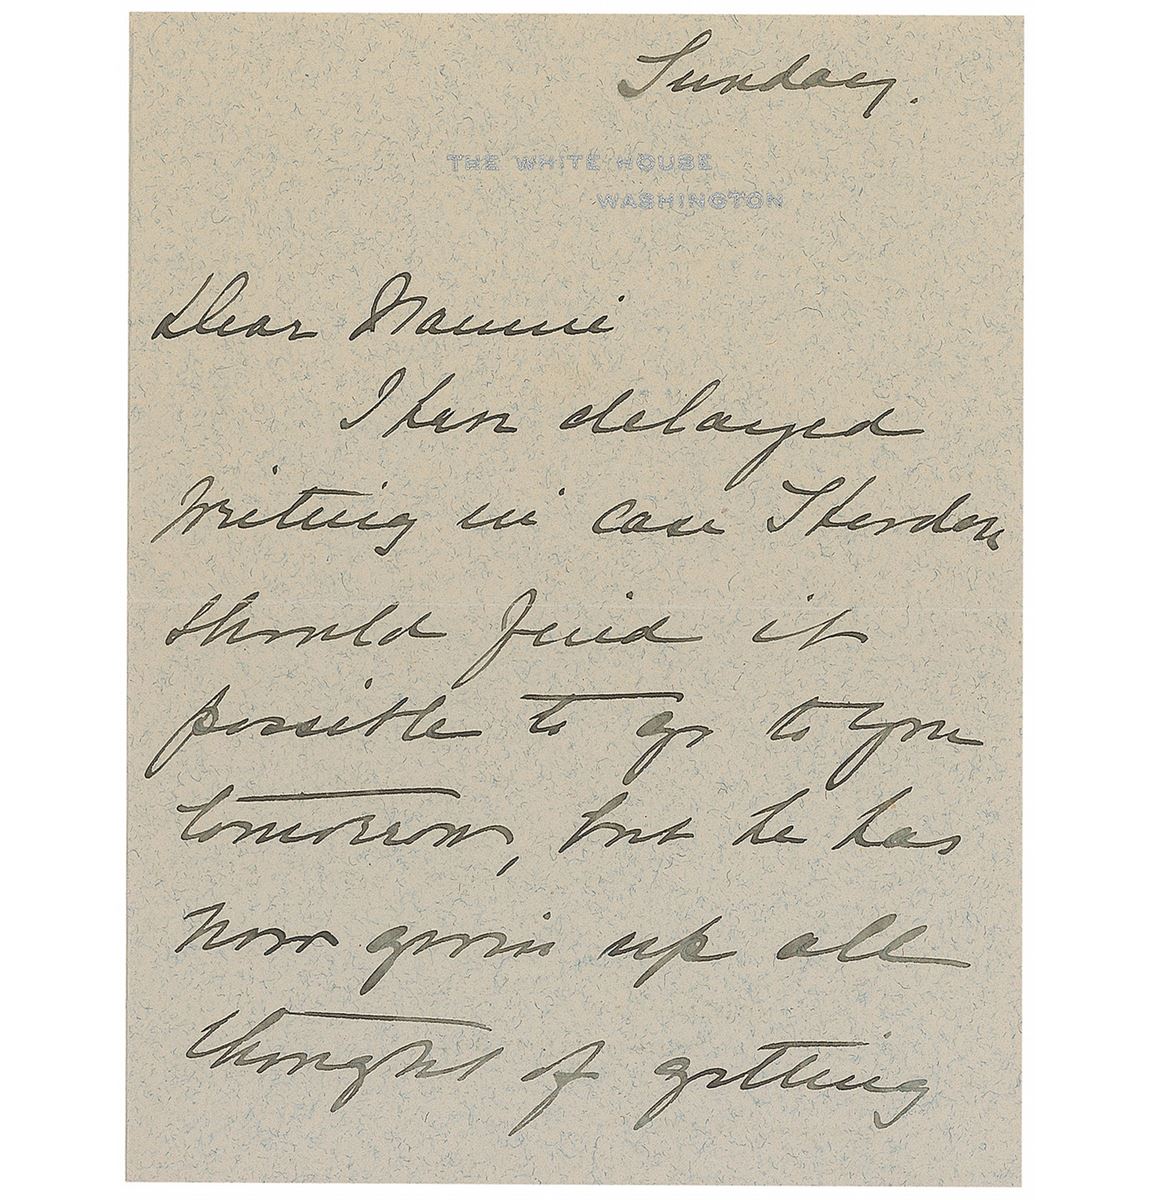 Sunday.
THE WHITE HOUSE
WASHINGTON
Dear Nannie
I have delayed
writing in case Theodore
should find it
possible to go to you
tomorrow, but he has
now given up all
thought of getting